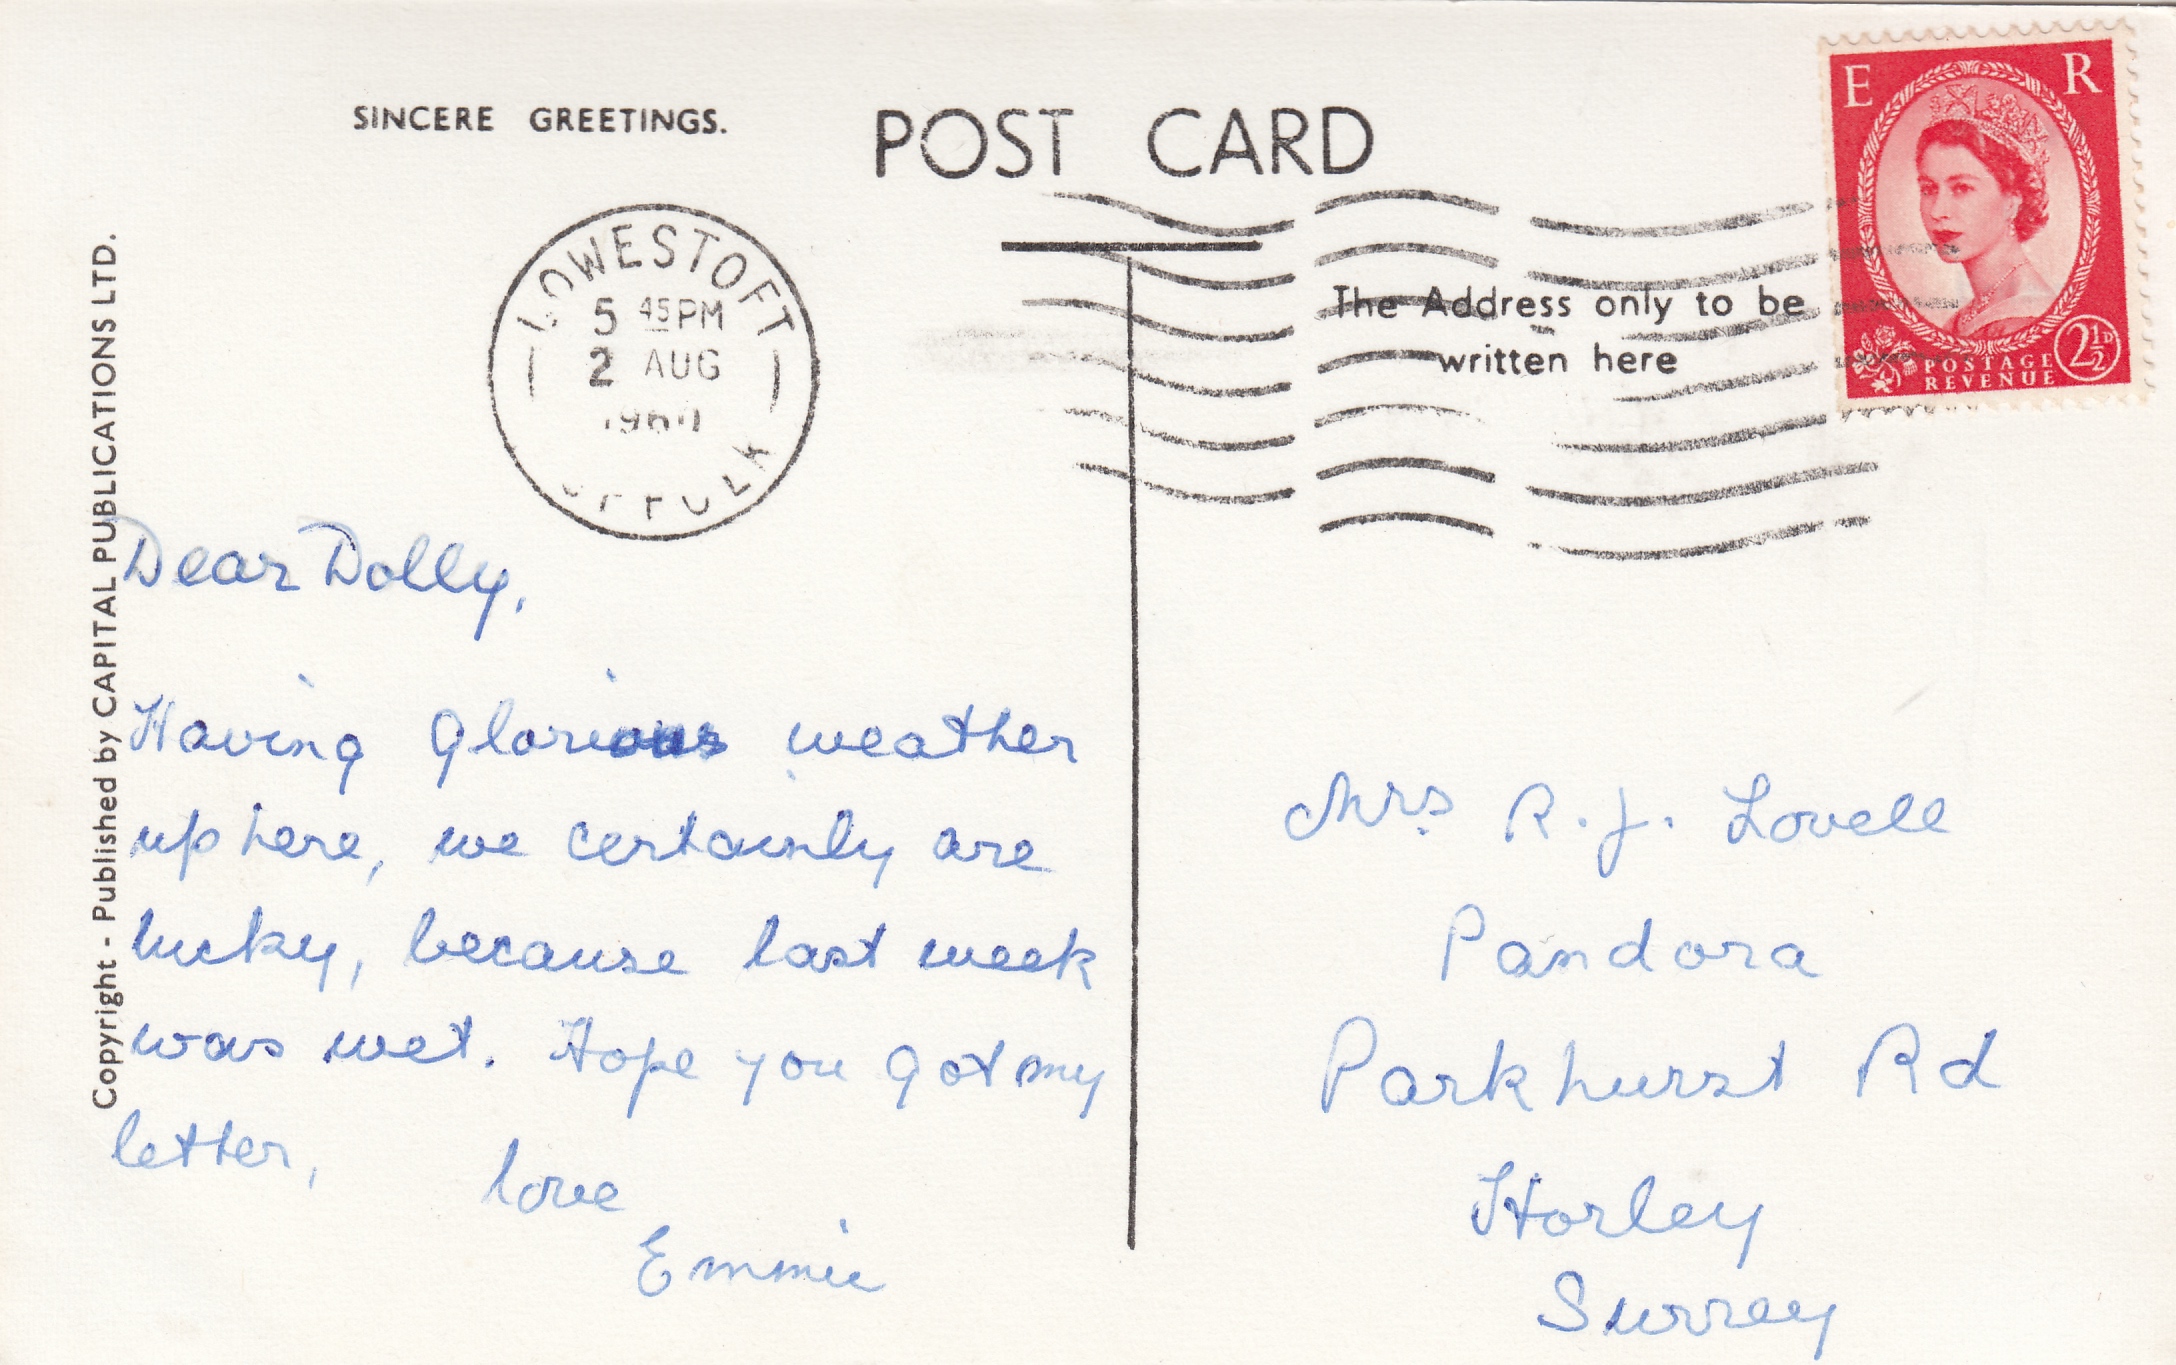 SINCERE GREETINGS.
POST CARD
LOWESTOFT
5 45 PM
2 AUG
E R
POSTAGE
REVENUE
2½D
The Address only to be
written here
Copyright - Published by CAPITAL PUBLICATIONS LTD.
Dear Dolly,
Having glorious weather
up here, we certainly are
lucky, because last week
was wet. Hope you got my
letter,
love
Emmie
Mrs R. J. Lovell
Pandora
Parkhurst Rd
Horley
Surrey